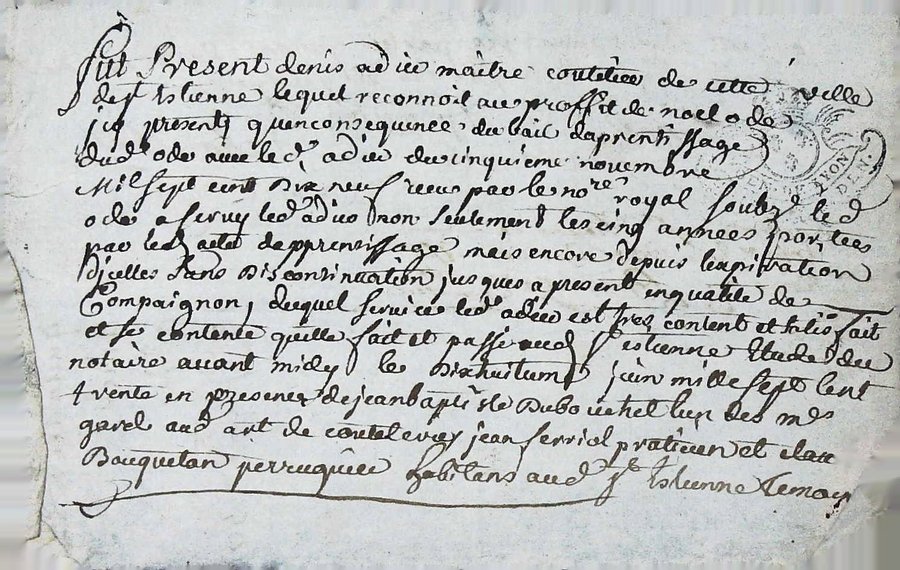 fut Present denis adier maitre coutelier de cette ville
de st Estienne lequel reconnoit au proffit de noel ode
icy present quenconsequence du bail daprentissage
dud ode avec led adier du cinquieme novembre
Mil sept cent Dix neuf receu par le nore royal soubzé led
ode a servy led adier non seulement les cinq années portees
par led acte dapprentissage mais encore depuis lexpiration
Dicelles sans Discontinuation jusques a present en qualite de
Compaignon, duquel service led adier est tres content et
et se contente quelle fait et passé aud st estienne Etude du
notaire avant midy le Dixhuitieme juin mille sept cent
trente en presence de jean baptiste Dubouchet lun des mes
garde aud art de coutelerie jean ferriol praticien et
Bouquetan perruquier habitans aud st Estienne temoins
LYON